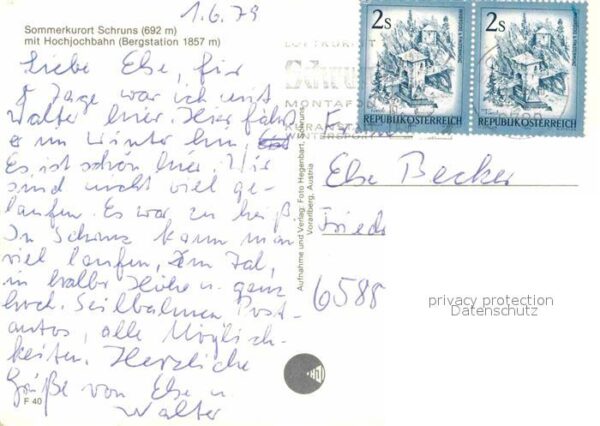 1.6.79
Sommerkurort Schruns (692 m)
mit Hochjochbahn (Bergstation 1857 m)
Liebe Else, für
8 Tage war ich mit
Walter hier. Hier fährt
er im Winter hin,
Es ist schön hier. Wir
sind nicht viel ge-
laufen. Es war zu heiß
In Schruns kann man
viel laufen, Im Tal,
in halber Höhe u. ganz
hoch. Seilbahnen Post-
autos, alle Möglich-
keiten. Herzliche
Grüße von Else u.
Walter
F 40
Aufnahme und Verlag: Foto Hegenbart, Schruns
Vorarlberg, Austria
LUFTKURORT
Schruns
MONTAFON
WINTERSPORT
2s
REPUBLIK ÖSTERREICH
2s
REPUBLIK ÖSTERREICH
Else Becker
6588
privacy protection
Datenschutz